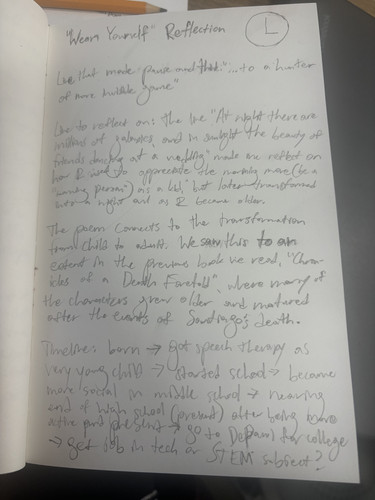 "Worn Yourself" Reflection L
Line that made "pause and think": "...to a hunter
of more invisible game"
Line to reflect on: the line "At night there are
instead of galaxies, and in sunlight the beauty of
friends dancing at a wedding" made me reflect on
how I used to appreciate the morning more (be a
"morning person") as a kid, but later transformed
into a night owl as I became older.
The poem connects to the transformation
from child to adult. We saw this to an
extent in the previous book we read, "Chron-
icles of a Death Foretold", where many of
the characters grew older and matured
after the events of Santiago's death.
Timeline: born → got speech therapy as
very young child → started school → became
more social in middle school → nearing
end of high school (present) after being more
active past present → go to DePaul for college
→ get job in tech or STEM subject?